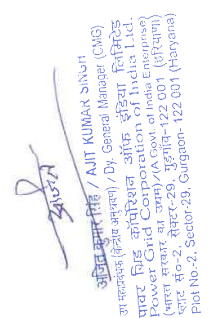 अजित कुमार सिंह / AJIT KUMAR SINGH
उप महाप्रबंधक (केन्द्रीय अनुश्रवण) / Dy. General Manager (CMG)
पावर ग्रिड कॉर्पोरेशन ऑफ इंडिया लिमिटेड
Power Grid Corporation of India Ltd.
(भारत सरकार का उद्यम)/(A Govt. of India Enterprise)
प्लाट सं०-2, सेक्टर-29, गुड़गाँव-122 001 (हरियाणा)
Plot No.-2, Sector-29, Gurgaon- 122 001 (Haryana)